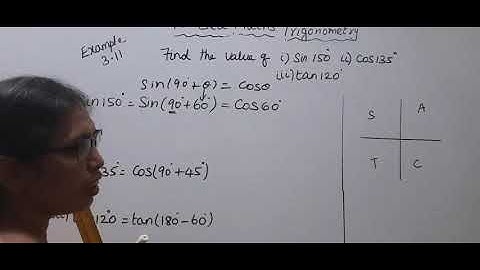 Maths Trigonometry
Example 3.11
Find the value of i) Sin 150° ii) Cos 135°
iii) tan 120°
Sin(90°+θ) = Cosθ
in 150° = Sin(90°+60°) = Cos 60°
35° = Cos(90°+45°)
120 = tan(180°-60°)
S A
T C